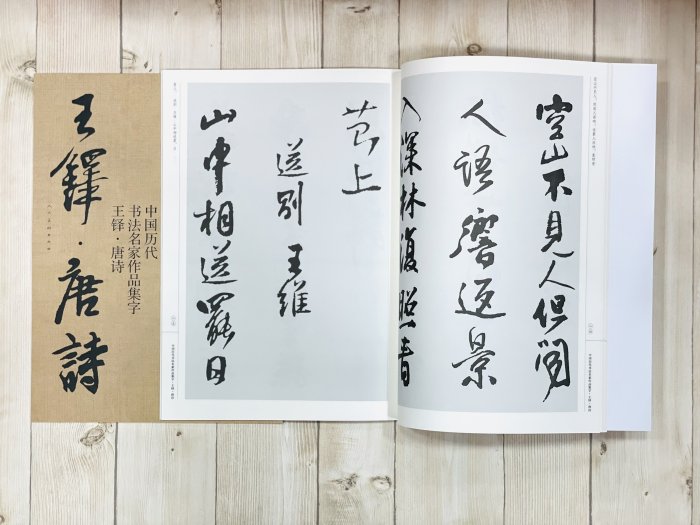 空山不見人但聞
人語響返景
入深林復照青
苔上
送别 王維
山中相送罷日
王鐸·唐詩
中国历代
书法名家作品集字
王铎·唐诗